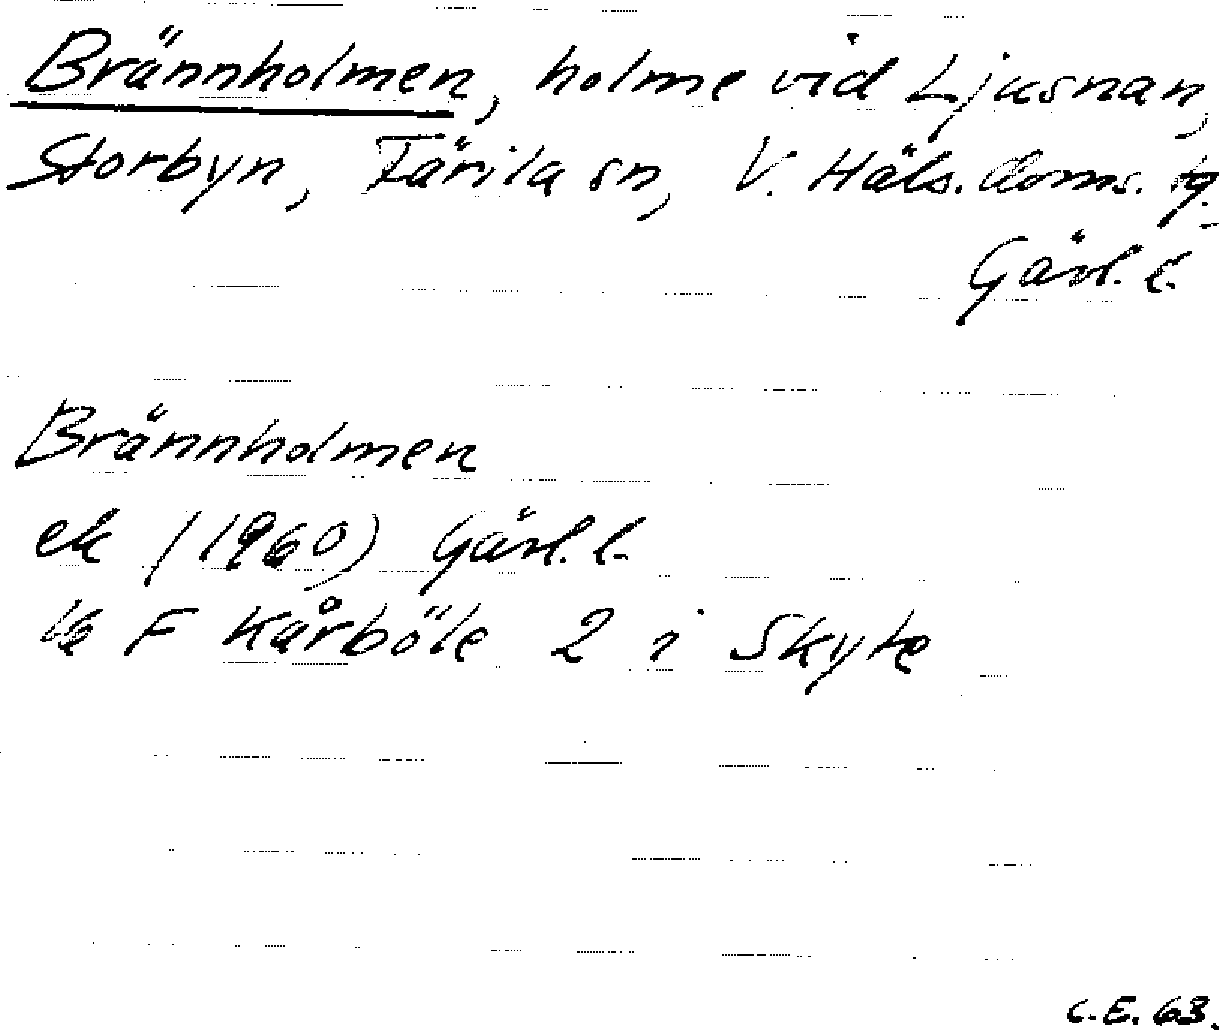 Brännholmen, holme vid Ljusnan,
Storbyn, Färila sn, V. Häls. doms. tg.
Gävl. l.
Brännholmen
ek (1960) Gävl. l.
F Kårböle 2 i Skyte
C.E. 63.